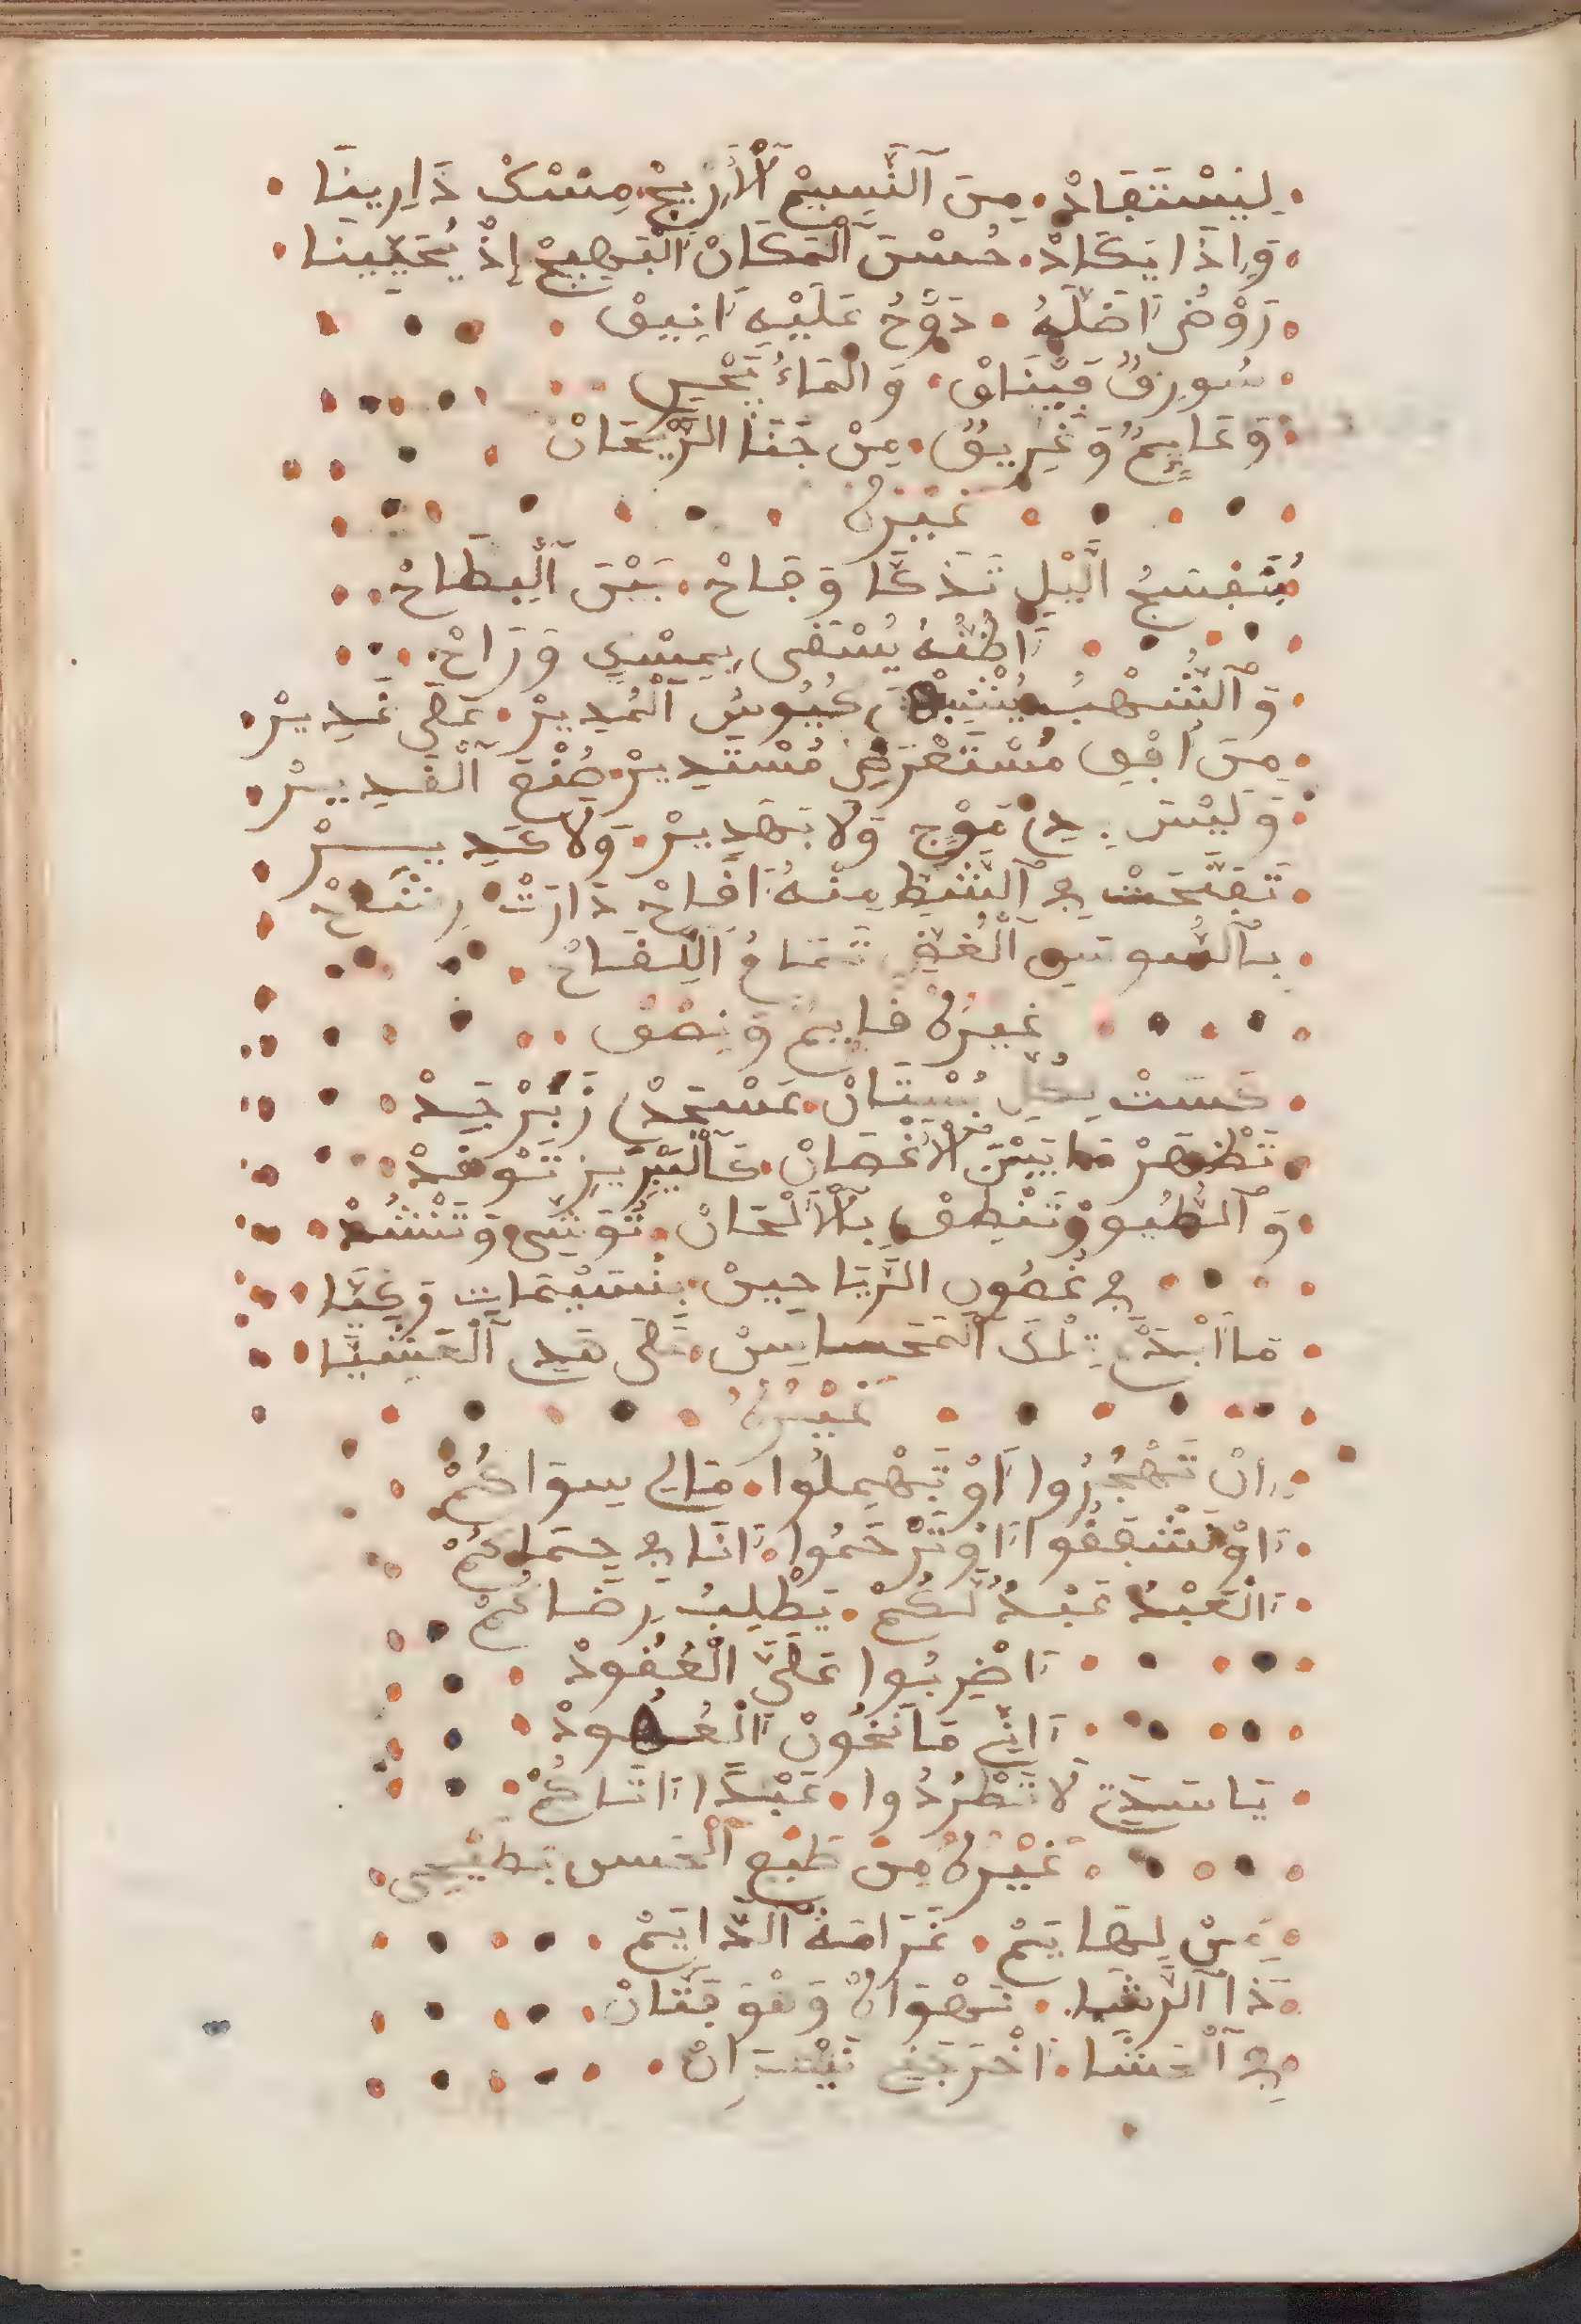 لِيَسْتَفَادْ. مِنَ ٱلنَّسِيمْ ٱلْأَرِيجْ. مِسْكْ دَارِينَا
وَإِذَا يَكَادْ. حُسْنَ ٱلْمَكَانْ ٱلْبَهِيجْ إِذْ يُحَيِّينَا
رَوْضٌ أَضَلَّهُ. دَوْحُ عَلَيْهِ أَنِيقْ
وَالْمَاءُ يَجْرِي
وَعَايِمٌ وَغَرِيقٌ. مِنْ جَنَا الرَّيْحَانْ
غَيْرُهُ
بَنَفْسَجُ اللَّيْلِ تَذَكَّا وَفَاحْ. بَيْنَ ٱلْبِطَاحْ
أَظُنُّهُ يُسْقَى بِمِسْكٍ وَرَاحْ
وَٱلشُّهْبُ كُيُوسُ ٱلْمُدِيرْ. عَلَى غَدِيرْ
مِنَ أُفْقِ مُسْتَعْرَضٍ مُسْتَدِيرْ. صُنْعَ ٱلْقَدِيرْ
وَلَيْسَ بِذِي مَوْجٍ وَلَا بَهَدِيرْ. وَلَا كَدِيرْ
تَفَتَّحَتْ فِي ٱلشَّطِّ مِنْهُ أَقَاحْ دَارَتْ
بِٱلسُّوسَنِ ٱلْغَضِّ
غَيْرُهُ قَايِمْ وَنِصْفْ
كَسَتْ بِكُلِّ بُسْتَانْ. عَسْجَدْ زَبَرْجَدْ
تَظْهَرْ مَا بَيْنَ ٱلْأَغْصَانْ. كَٱلْإِبْرِيزِ تَوْقَدْ
وَٱلطُّيُورْ تَنْطِقْ بِٱلْأَلْحَانْ. تُوَشِّي وَتَنْشُدْ
فِي غُصُونِ الرَّيَاحِينْ. بِنُسَيْمَاتٍ وَكِيَّا
مَا أَبْدَعْ تِلْكَ ٱلْمَحَاسِنْ. عَلَى هَذِهِ ٱلْعَشِيَّا
غَيْرُهُ
إِنْ تَهْجُرُوا أَوْ تَهْمِلُوا. مَالِي سِوَاكُمْ
أَوْ تَشْفِقُوا أَوْ تَرْحَمُوا. أَنَا فِي حِمَاكُمْ
أَلْعَبْدُ عَبْدٌ لَكُمْ. يَطْلِبُ رِضَاكُمْ
أَضْرِبُوا عَلَيَّ الْعُقُودْ
أَنِّي مَا نَخُونْ أَلْعُهُودْ
يَا سَادَتِي لَا تَطْرُدُوا. عَبْدًا أَتَاكُمْ
غَيْرُهُ مِنْ طَبْعِ ٱلْحُسَيْنِ بَطَايْحِي
مَنْ لِهَايِمْ. غَرَامَهُ الدَّايِمْ
ذَا ٱلرَّشَا. نَهْوَاهُ وَهْوَ فَتَّانْ
فِي ٱلْحَشَا. نِيرَانْ